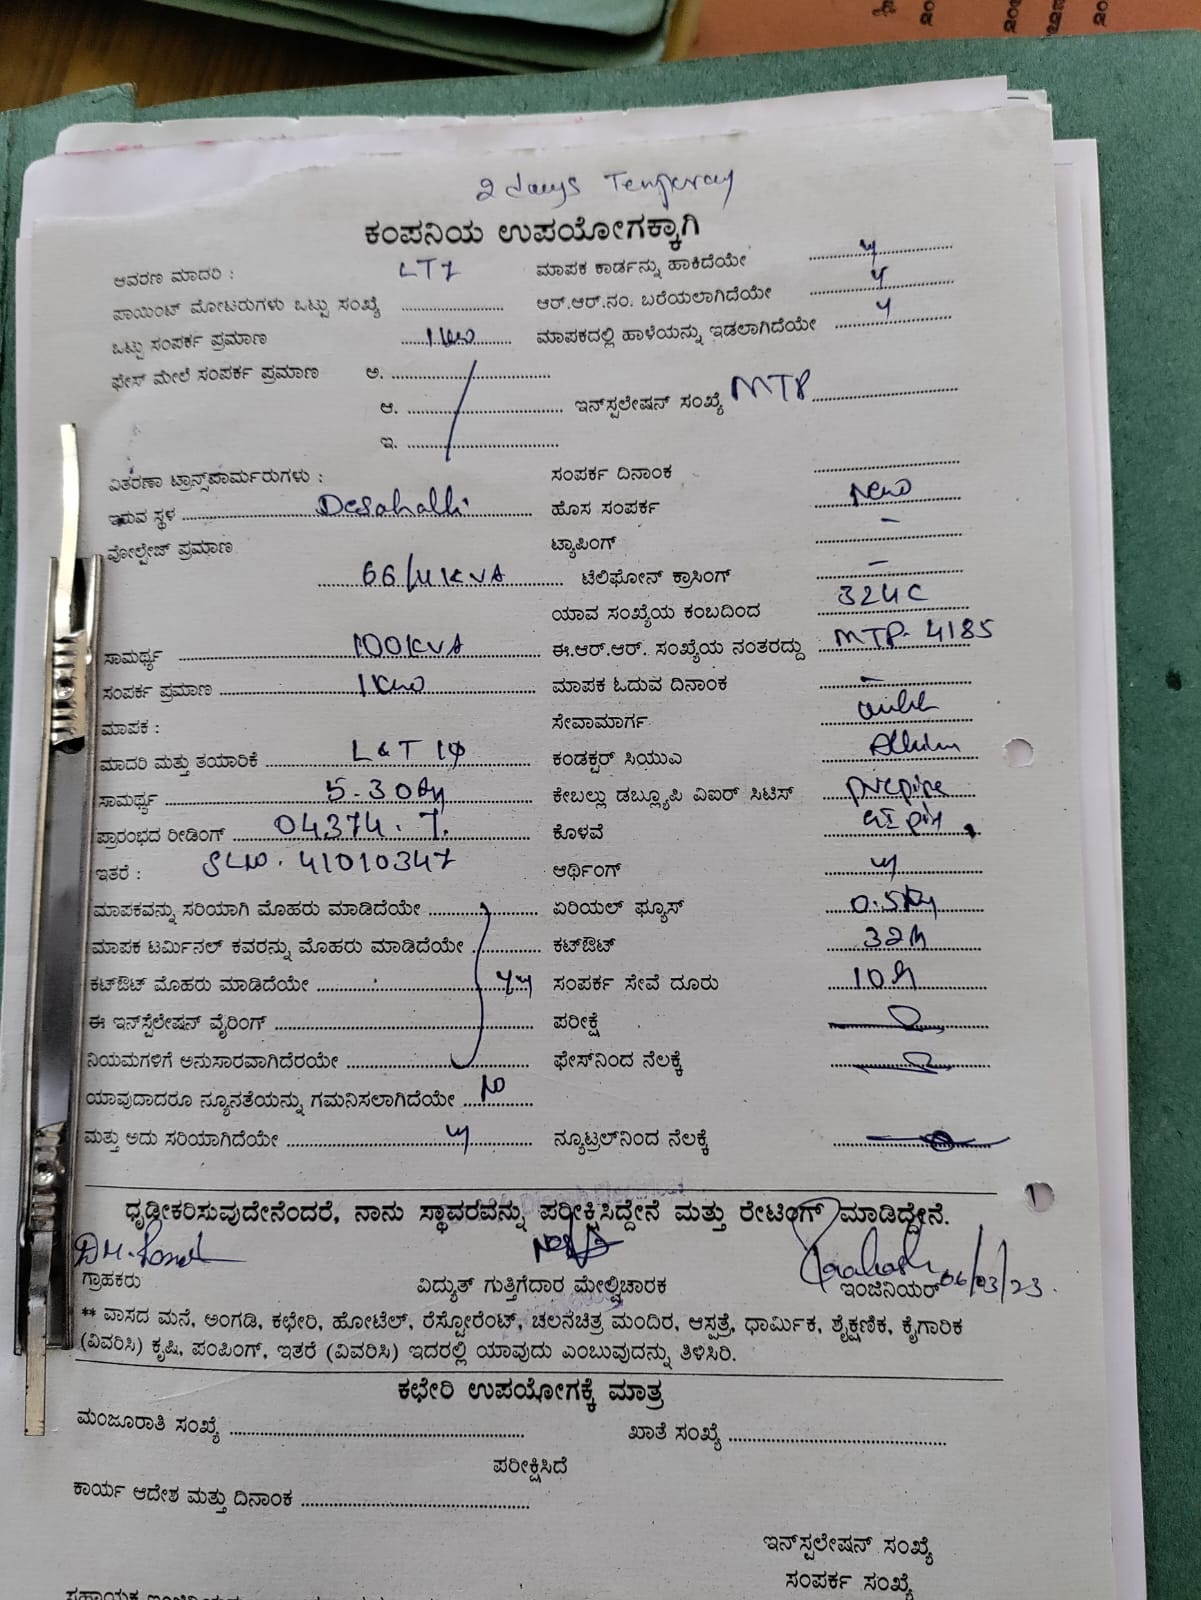 2 days Temperay
ಕಂಪನಿಯ ಉಪಯೋಗಕ್ಕಾಗಿ
ಆವರಣ ಮಾದರಿ : LT7 ಮಾಪಕ ಕಾರ್ಡನ್ನು ಹಾಕಿದೆಯೇ y
ಪಾಯಿಂಟ್ ಮೋಟರುಗಳು ಒಟ್ಟು ಸಂಖ್ಯೆ ಆರ್.ಆರ್.ನಂ. ಬರೆಯಲಾಗಿದೆಯೇ y
ಒಟ್ಟು ಸಂಪರ್ಕ ಪ್ರಮಾಣ 1 Kw ಮಾಪಕದಲ್ಲಿ ಹಾಳೆಯನ್ನು ಇಡಲಾಗಿದೆಯೇ y
ಫೇಸ್ ಮೇಲೆ ಸಂಪರ್ಕ ಪ್ರಮಾಣ ಅ.
ಆ. ಇನ್‌ಸ್ಪಲೇಷನ್ ಸಂಖ್ಯೆ MTP
ಇ.
ವಿತರಣಾ ಟ್ರಾನ್ಸ್‌ಪಾರ್ಮರುಗಳು : ಸಂಪರ್ಕ ದಿನಾಂಕ
ಇರುವ ಸ್ಥಳ Desahalli ಹೊಸ ಸಂಪರ್ಕ New
ವೋಲ್ಟೇಜ್ ಪ್ರಮಾಣ ಟ್ಯಾಪಿಂಗ್ -
66/11 KVA ಟೆಲಿಫೋನ್ ಕ್ರಾಸಿಂಗ್ -
ಯಾವ ಸಂಖ್ಯೆಯ ಕಂಬದಿಂದ 324C
ಸಾಮರ್ಥ್ಯ 100KVA ಈ.ಆರ್.ಆರ್. ಸಂಖ್ಯೆಯ ನಂತರದ್ದು MTP- 4185
ಸಂಪರ್ಕ ಪ್ರಮಾಣ 1 Kw ಮಾಪಕ ಓದುವ ದಿನಾಂಕ -
ಮಾಪಕ : ಸೇವಾಮಾರ್ಗ
ಮಾದರಿ ಮತ್ತು ತಯಾರಿಕೆ L&T 1φ ಕಂಡಕ್ಟರ್ ಸಿಯುಎ
ಸಾಮರ್ಥ್ಯ 5-30 ಕೇಬಲ್ಲು ಡಬ್ಲ್ಯೂಪಿ ವಿಐರ್ ಸಿಟಿಸ್ PVC pipe
ಪ್ರಾರಂಭದ ರೀಡಿಂಗ್ 04374.7 ಕೊಳವೆ
ಇತರೆ : SLNO. 41010347 ಆರ್ಥಿಂಗ್ y
ಮಾಪಕವನ್ನು ಸರಿಯಾಗಿ ಮೊಹರು ಮಾಡಿದೆಯೇ ಏರಿಯಲ್ ಫ್ಯೂಸ್
ಮಾಪಕ ಟರ್ಮಿನಲ್ ಕವರನ್ನು ಮೊಹರು ಮಾಡಿದೆಯೇ ಕಟ್‌ಔಟ್ 32A
ಕಟ್‌ಔಟ್ ಮೊಹರು ಮಾಡಿದೆಯೇ ಸಂಪರ್ಕ ಸೇವೆ ದೂರು
ಈ ಇನ್‌ಸ್ಪೆಲೇಷನ್ ವೈರಿಂಗ್ ಪರೀಕ್ಷೆ
ನಿಯಮಗಳಿಗೆ ಅನುಸಾರವಾಗಿದೆರಯೇ ಫೇಸ್‌ನಿಂದ ನೆಲಕ್ಕೆ
ಯಾವುದಾದರೂ ನ್ಯೂನತೆಯನ್ನು ಗಮನಿಸಲಾಗಿದೆಯೇ NO
ಮತ್ತು ಅದು ಸರಿಯಾಗಿದೆಯೇ y ನ್ಯೂಟ್ರಲ್‌ನಿಂದ ನೆಲಕ್ಕೆ
ಧೃಢೀಕರಿಸುವುದೇನೆಂದರೆ, ನಾನು ಸ್ಥಾವರವನ್ನು ಪರೀಕ್ಷಿಸಿದ್ದೇನೆ ಮತ್ತು ರೇಟಿಂಗ್ ಮಾಡಿದ್ದೇನೆ.
06/03/23.
ಗ್ರಾಹಕರು ವಿದ್ಯುತ್ ಗುತ್ತಿಗೆದಾರ ಮೇಲ್ವಿಚಾರಕ ಇಂಜಿನಿಯರ್
** ವಾಸದ ಮನೆ, ಅಂಗಡಿ, ಕಛೇರಿ, ಹೋಟೆಲ್, ರೆಸ್ಟೋರೆಂಟ್, ಚಲನಚಿತ್ರ ಮಂದಿರ, ಆಸ್ಪತ್ರೆ, ಧಾರ್ಮಿಕ, ಶೈಕ್ಷಣಿಕ, ಕೈಗಾರಿಕ
(ವಿವರಿಸಿ) ಕೃಷಿ, ಪಂಪಿಂಗ್, ಇತರೆ (ವಿವರಿಸಿ) ಇದರಲ್ಲಿ ಯಾವುದು ಎಂಬುವುದನ್ನು ತಿಳಿಸಿರಿ.
ಕಛೇರಿ ಉಪಯೋಗಕ್ಕೆ ಮಾತ್ರ
ಮಂಜೂರಾತಿ ಸಂಖ್ಯೆ ಖಾತೆ ಸಂಖ್ಯೆ
ಪರೀಕ್ಷಿಸಿದೆ
ಕಾರ್ಯ ಆದೇಶ ಮತ್ತು ದಿನಾಂಕ
ಇನ್‌ಸ್ಪಲೇಷನ್ ಸಂಖ್ಯೆ
ಸಂಪರ್ಕ ಸಂಖ್ಯೆ